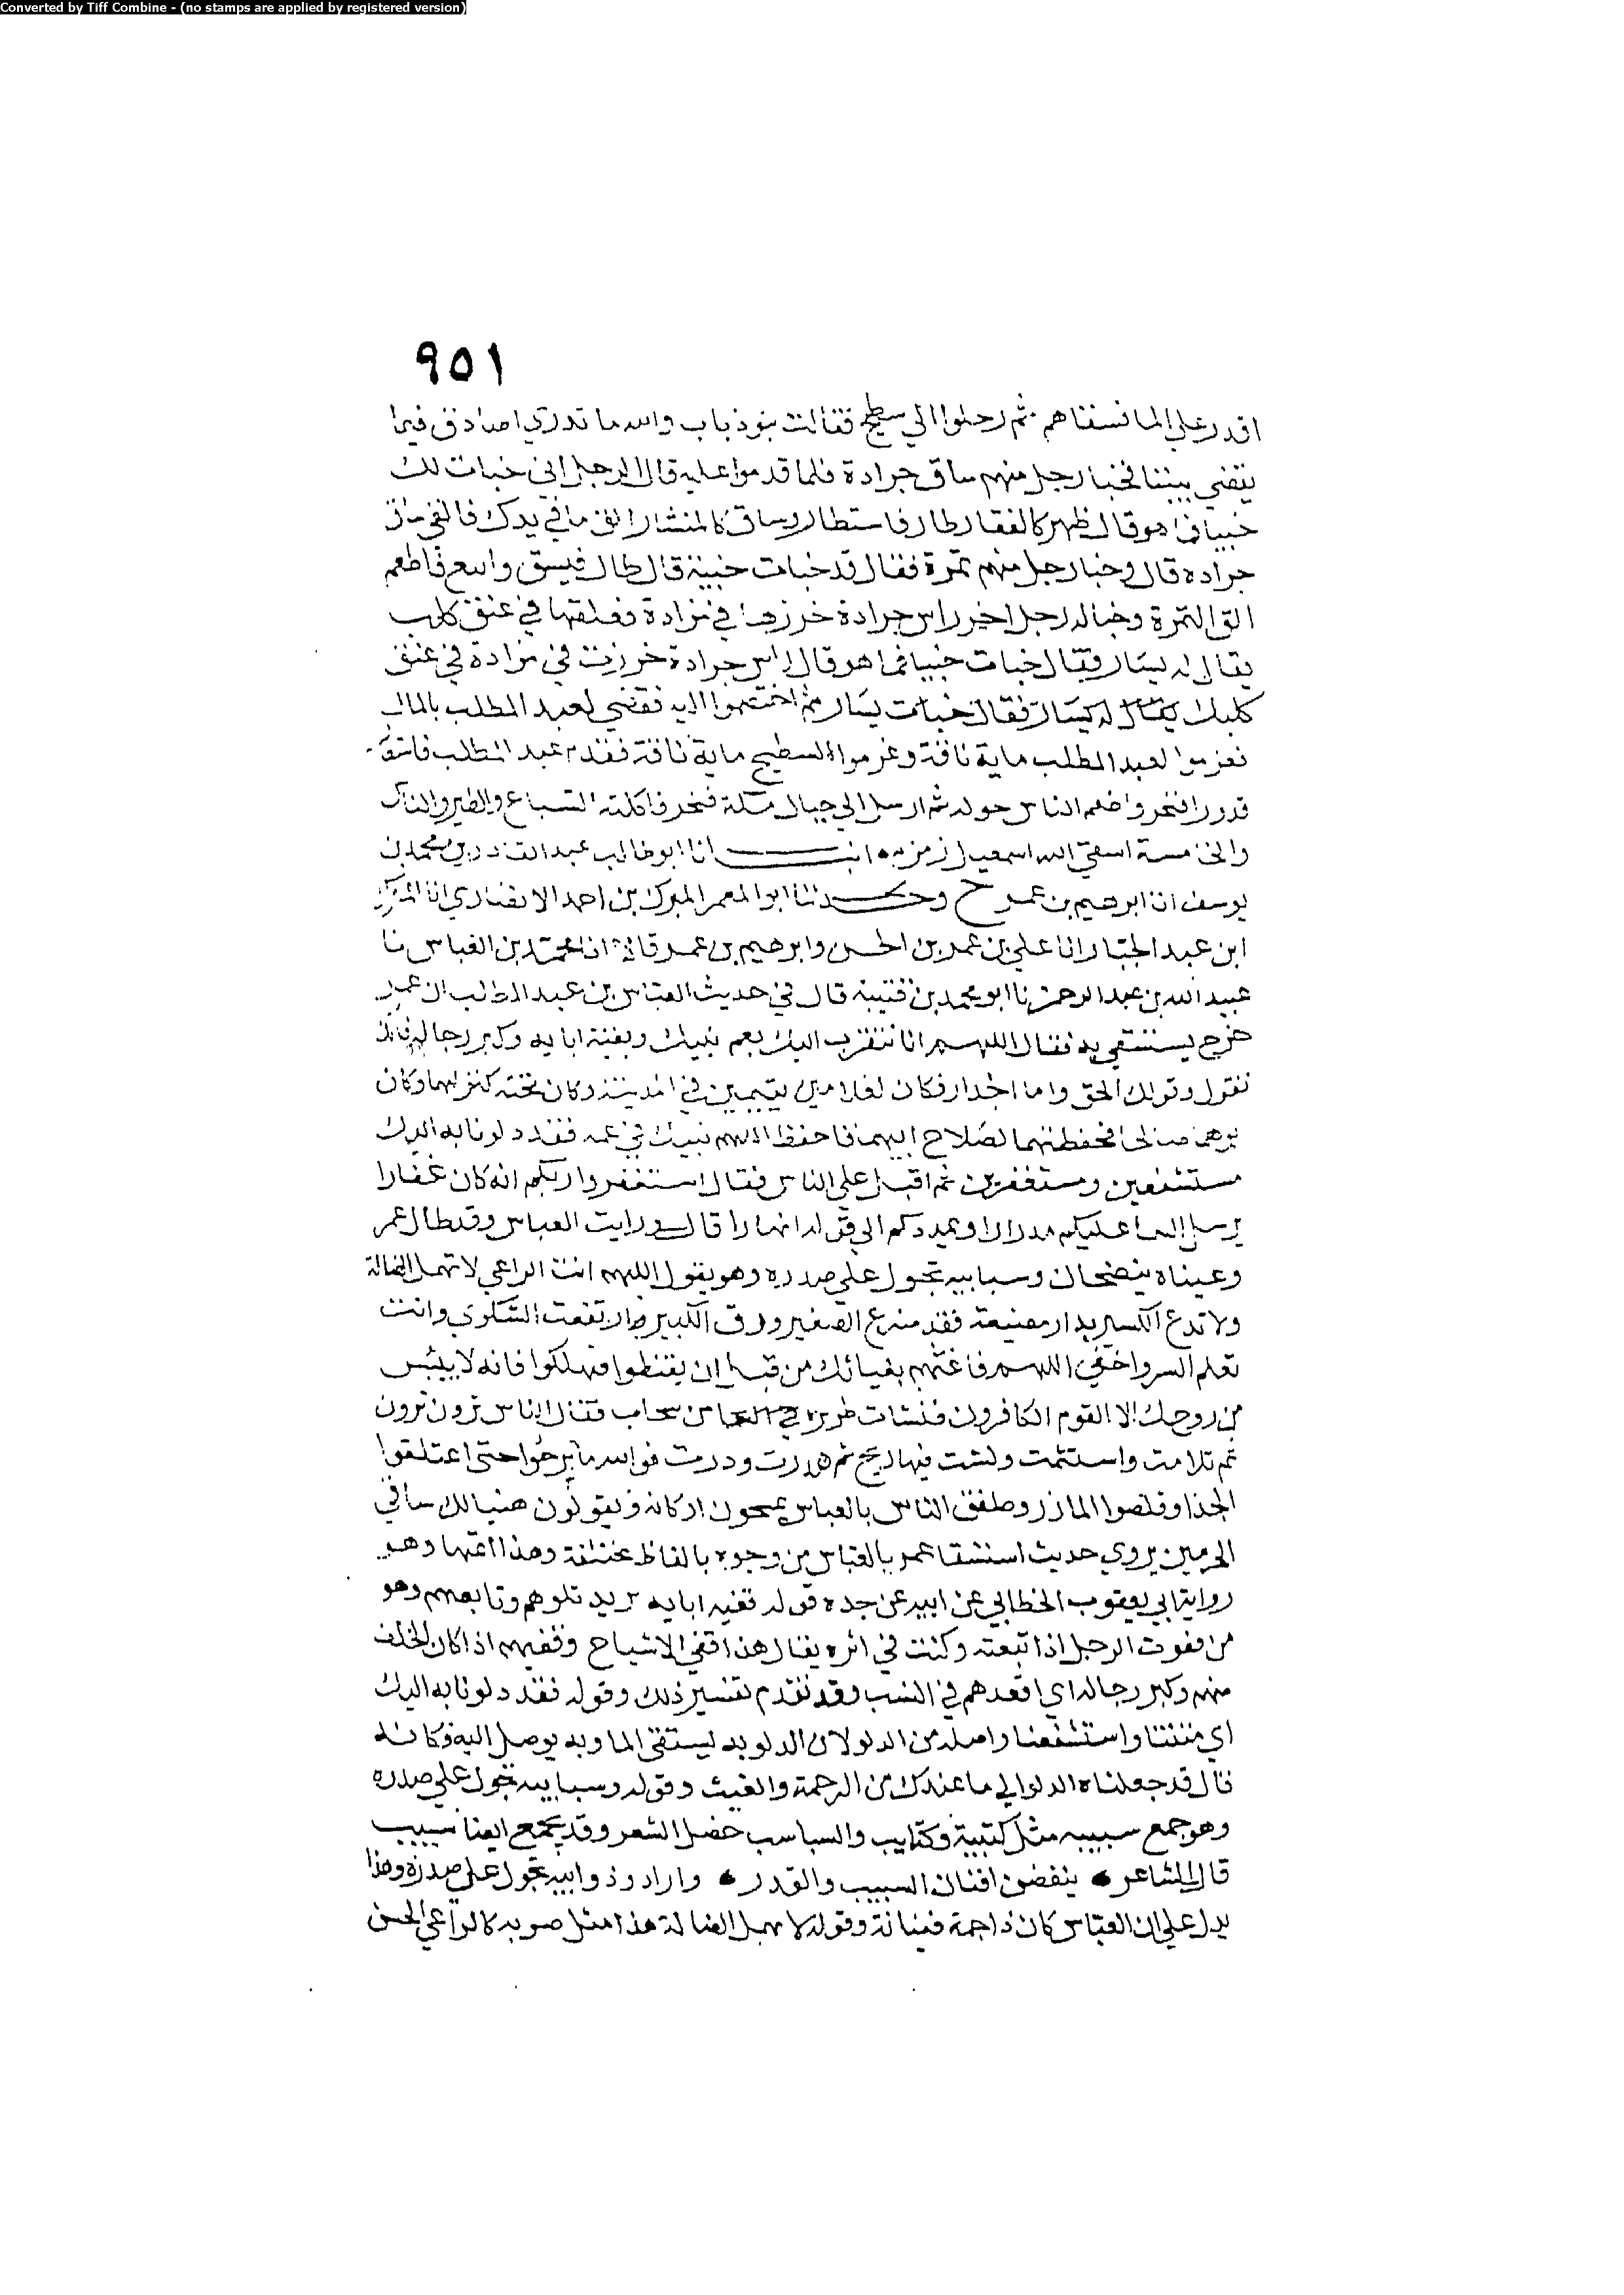 Converted by Tiff Combine - (no stamps are applied by registered version)
٩٥١
اقدر علي الما فسقناهم ثم رحلوا الي سطيح فقالت بنو ذباب والله ما ندري اصادق فيما
يقضي بيننا فخبا رجل منهم ساق جرادة فلما قدموا عليه قال الرجل اني خبات لك
خبيا فما هو قال ظهر كالفقار طار فاستطار وساق كالمنشار الق ما في يدك فالقي ساق
جراده قال وخبا رجل منهم تمرة فقال قد خبات خبيئة قال طال فبسق وابنع فاطعم
الق التمرة وخبا له رجل اخر راس جرادة خرزها في مزادة فعلقها في عنق كلب
يقال له يسار فقال خبات خبيا فما هو قال راس جرادة خرزت في مزادة في عنق
كلبك يقال له يسار فقال خبات يسار ثم اختصموا اليه فقضي لعبد المطلب بالمال
فغرموا لعبد المطلب ماية ناقة وغرموا لسطيح ماية ناقة فقدم عبد المطلب فاستعار
قدورا فنحر واطعم الناس حوله ثم ارسل الي جبال مكة فنحر فاكلته السباع والطير والناس
والخامسة اسقي الله اسمعيل زمزم انبـــا انا ابو طالب عبد القادر بن محمد بن
يوسف انا ابرهيم بن عمر ح وحدثنا ابو المعمر المبرك بن احمد الانصاري انا المبرك
ابن عبد الجبار انا علي بن عمر بن الحسن وابرهيم بن عمر قالا انا محمد بن العباس نا
عبيد الله بن عبد الرحمن نا ابو محمد بن قتيبة قال في حديث العباس بن عبد المطلب ان عمر
خرج يستسقي به فقال اللهم انا نتقرب اليك بعم نبيك وبقية ابايه وكبر رجاله فانك
تقول وقولك الحق واما الجدار فكان لغلامين يتيمين في المدينة وكان تحته كنز لهما وكان
ابوهما صالحا فحفظتهما لصلاح ابيهما فاحفظ اللهم نبيك في عمه فقد دلونا به اليك
مستشفعين ومستغفرين ثم اقبل علي الناس فقال استغفروا ربكم انه كان غفارا
يرسل السما عليكم مدرارا ويمددكم الي قوله انهارا قال ورايت العباس وقد طال عمر
وعيناه ينضحان وسبابيه تجول علي صدره وهو يقول اللهم انت الراعي لا تهمل الضالة
ولا تدع الكسير بدار مضيعة فقد ضرع الصغير ورق الكبير وارتفعت الشكوي وانت
تعلم السر واخفي اللهم فاغثهم بغياثك من قبل ان يقنطوا فيهلكوا فانه لا يييس
من روحك الا القوم الكافرون فنشات طريرة من سحاب فقال الناس ترون ترون
ثم تلامت واستتمت ومشت فيها ريح ثم هدرت ودرت فوالله ما برحوا حتي اعتلقوا
الحذا وقلصوا المازر وطفق الناس بالعباس يمسحون اركانه ويقولون هنيا لك ساقي
الحرمين يروي حديث استسقا عمر بالعباس من وجوه بالفاظ مختلفة وهذا اتمها وهو
رواية ابي يعقوب الخطابي عن ابيه عن جده قوله قفيه ابايه يريد تلوهم وتابعهم وهو
من قفوت الرجل اذا تبعته وكنت في اثره يقال هذا قفي الاشياخ وقفيهم اذا كان الخلف
منهم وكبر رجاله اي اقعدهم في النسب وقد تقدم تفسير ذلك وقوله فقد دلونا به اليك
اي متتنا واستشفعنا واصله من الدلو لان الدلو به يستقي الما وبه يوصل اليه فكانه
قال قد جعلناه الدلو الي ما عندك من الرحمة والغيث وقوله وسبابيه تجول علي صدره
وهو جمع سبيبه مثل كتيبة وكتايب والسبايب خصل الشعر وقد يجمع ايضا سبيب
قال الشاعر • ينفضن افنان السبيب والقدر • واراد وذوايبه تجول علي صدره وهذا
يدل علي ان العباس كان ذا جمة فينانة وقوله لا تهمل الضالة هذا مثل ضربه كالراعي الحسن